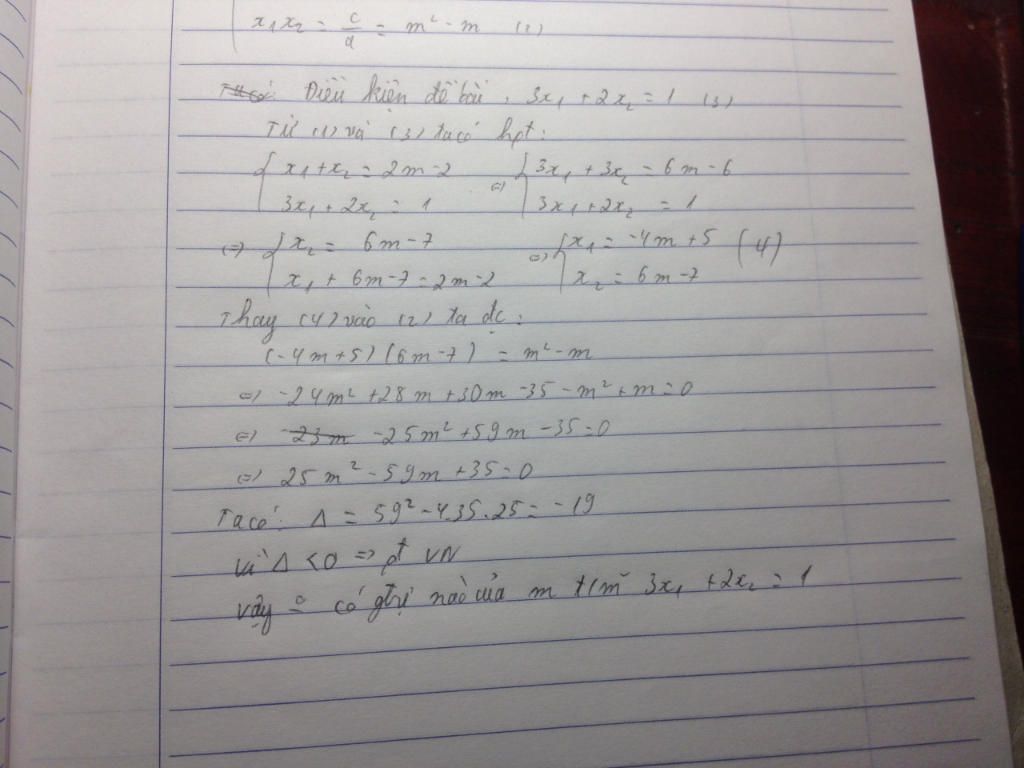 x₁x₂ = c/a = m² - m (2)
Điều kiện đề bài, 3x₁ + 2x₂ = 1 (3)
Từ (1) và (3) ta có hpt:
{ x₁ + x₂ = 2m - 2 <=> { 3x₁ + 3x₂ = 6m - 6
3x₁ + 2x₂ = 1 3x₁ + 2x₂ = 1
<=> { x₂ = 6m - 7 <=> { x₁ = -4m + 5 (4)
x₁ + 6m - 7 = 2m - 2 x₂ = 6m - 7
Thay (4) vào (2) ta đc:
(-4m + 5)(6m - 7) = m² - m
<=> -24m² + 28m + 30m - 35 - m² + m = 0
<=> -25m² + 59m - 35 = 0
<=> 25m² - 59m + 35 = 0
Ta có: Δ = 59² - 4.35.25 = -19
Vì Δ < 0 => pt VN
Vậy có gtrị nào của m t/m 3x₁ + 2x₂ = 1